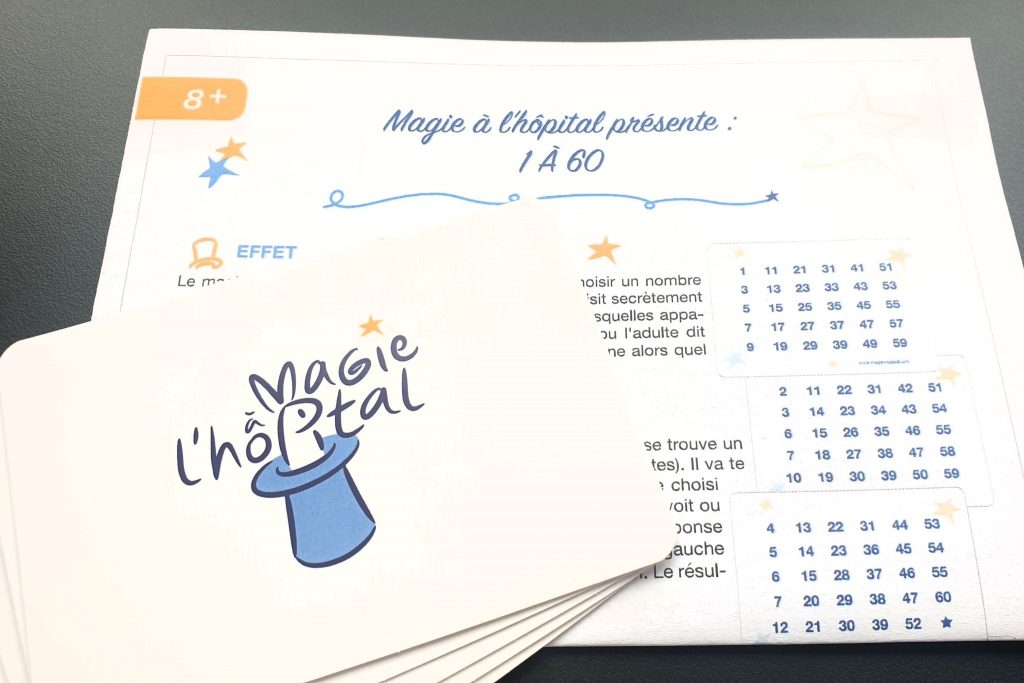 8+
Magie à l'hôpital présente :
1 À 60
EFFET
Le
choisir un nombre
secrètement
esquelles appa-
ou l'adulte dit
alors quel
se trouve un
Il va te
choisi
voit ou
gauche
Le résul-
1 11 21 31 41 51
3 13 23 33 43 53
5 15 25 35 45 55
7 17 27 37 47 57
9 19 29 39 49 59
2 11 22 31 42 51
3 14 23 34 43 54
6 15 26 35 46 55
7 18 27 38 47 58
10 19 30 39 50 59
4 13 22 31 44 53
5 14 23 36 45 54
6 15 28 37 46 55
7 20 29 38 47 60
12 21 30 39 52
Magie
à
l'hôpital